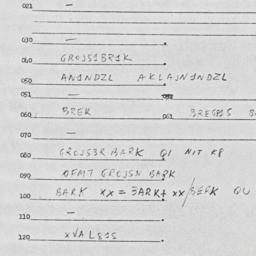 021 —
030 —
040 GROJS1BR1K
050 AN1NDZL AKLAJN1NDZL
051 —
060 BREK 061 BREGP1S
070 —
080 GROJS3R BARK Q1 NIT K8
090 OFMT GROJSN BARK
100 BARK XX = BARK+ XX/BERK QU
110 —
120 XVAL81S